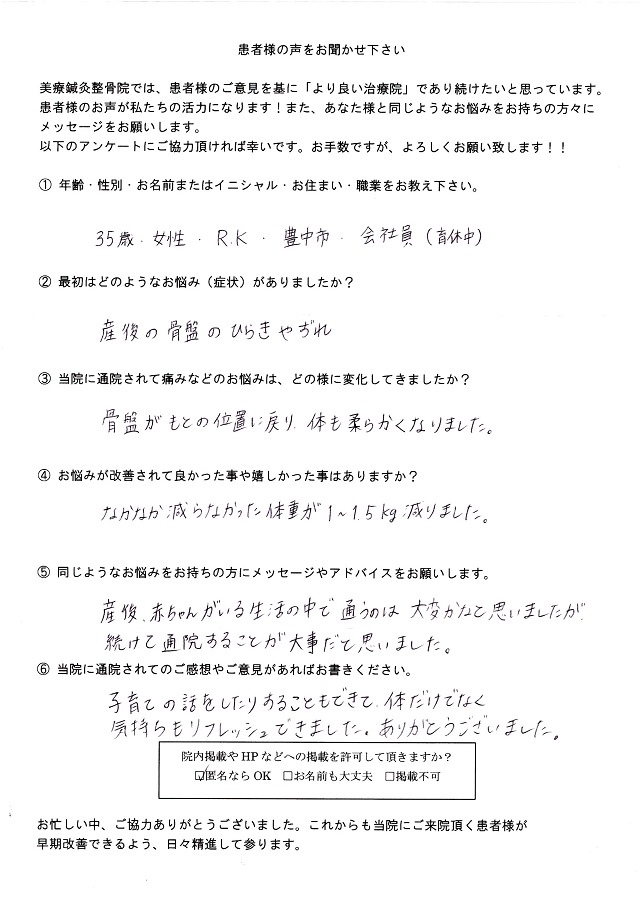 患者様の声をお聞かせ下さい
美療鍼灸整骨院では、患者様のご意見を基に「より良い治療院」であり続けたいと思っています。
患者様のお声が私たちの活力になります！また、あなた様と同じようなお悩みをお持ちの方々に
メッセージをお願いします。
以下のアンケートにご協力頂ければ幸いです。お手数ですが、よろしくお願い致します！！
① 年齢・性別・お名前またはイニシャル・お住まい・職業をお教え下さい。
35歳・女性・R.K・豊中市・会社員（育休中）
② 最初はどのようなお悩み（症状）がありましたか？
産後の骨盤のひらきやぢれ
③ 当院に通院されて痛みなどのお悩みは、どの様に変化してきましたか？
骨盤がもとの位置に戻り、体も柔らかくなりました。
④ お悩みが改善されて良かった事や嬉しかった事はありますか？
なかなか減らなかった体重が1～1.5kg減りました。
⑤ 同じようなお悩みをお持ちの方にメッセージやアドバイスをお願いします。
産後、赤ちゃんがいる生活の中で通うのは大変かなと思いましたが、
続けて通院することが大事だと思いました。
⑥ 当院に通院されてのご感想やご意見があればお書きください。
子育ての話をしたりすることもできて、体だけでなく
気持ちもリフレッシュできました。ありがとうございました。
院内掲載やHPなどへの掲載を許可して頂きますか？
☑匿名ならOK □お名前も大丈夫 □掲載不可
お忙しい中、ご協力ありがとうございました。これからも当院にご来院頂く患者様が
早期改善できるよう、日々精進して参ります。